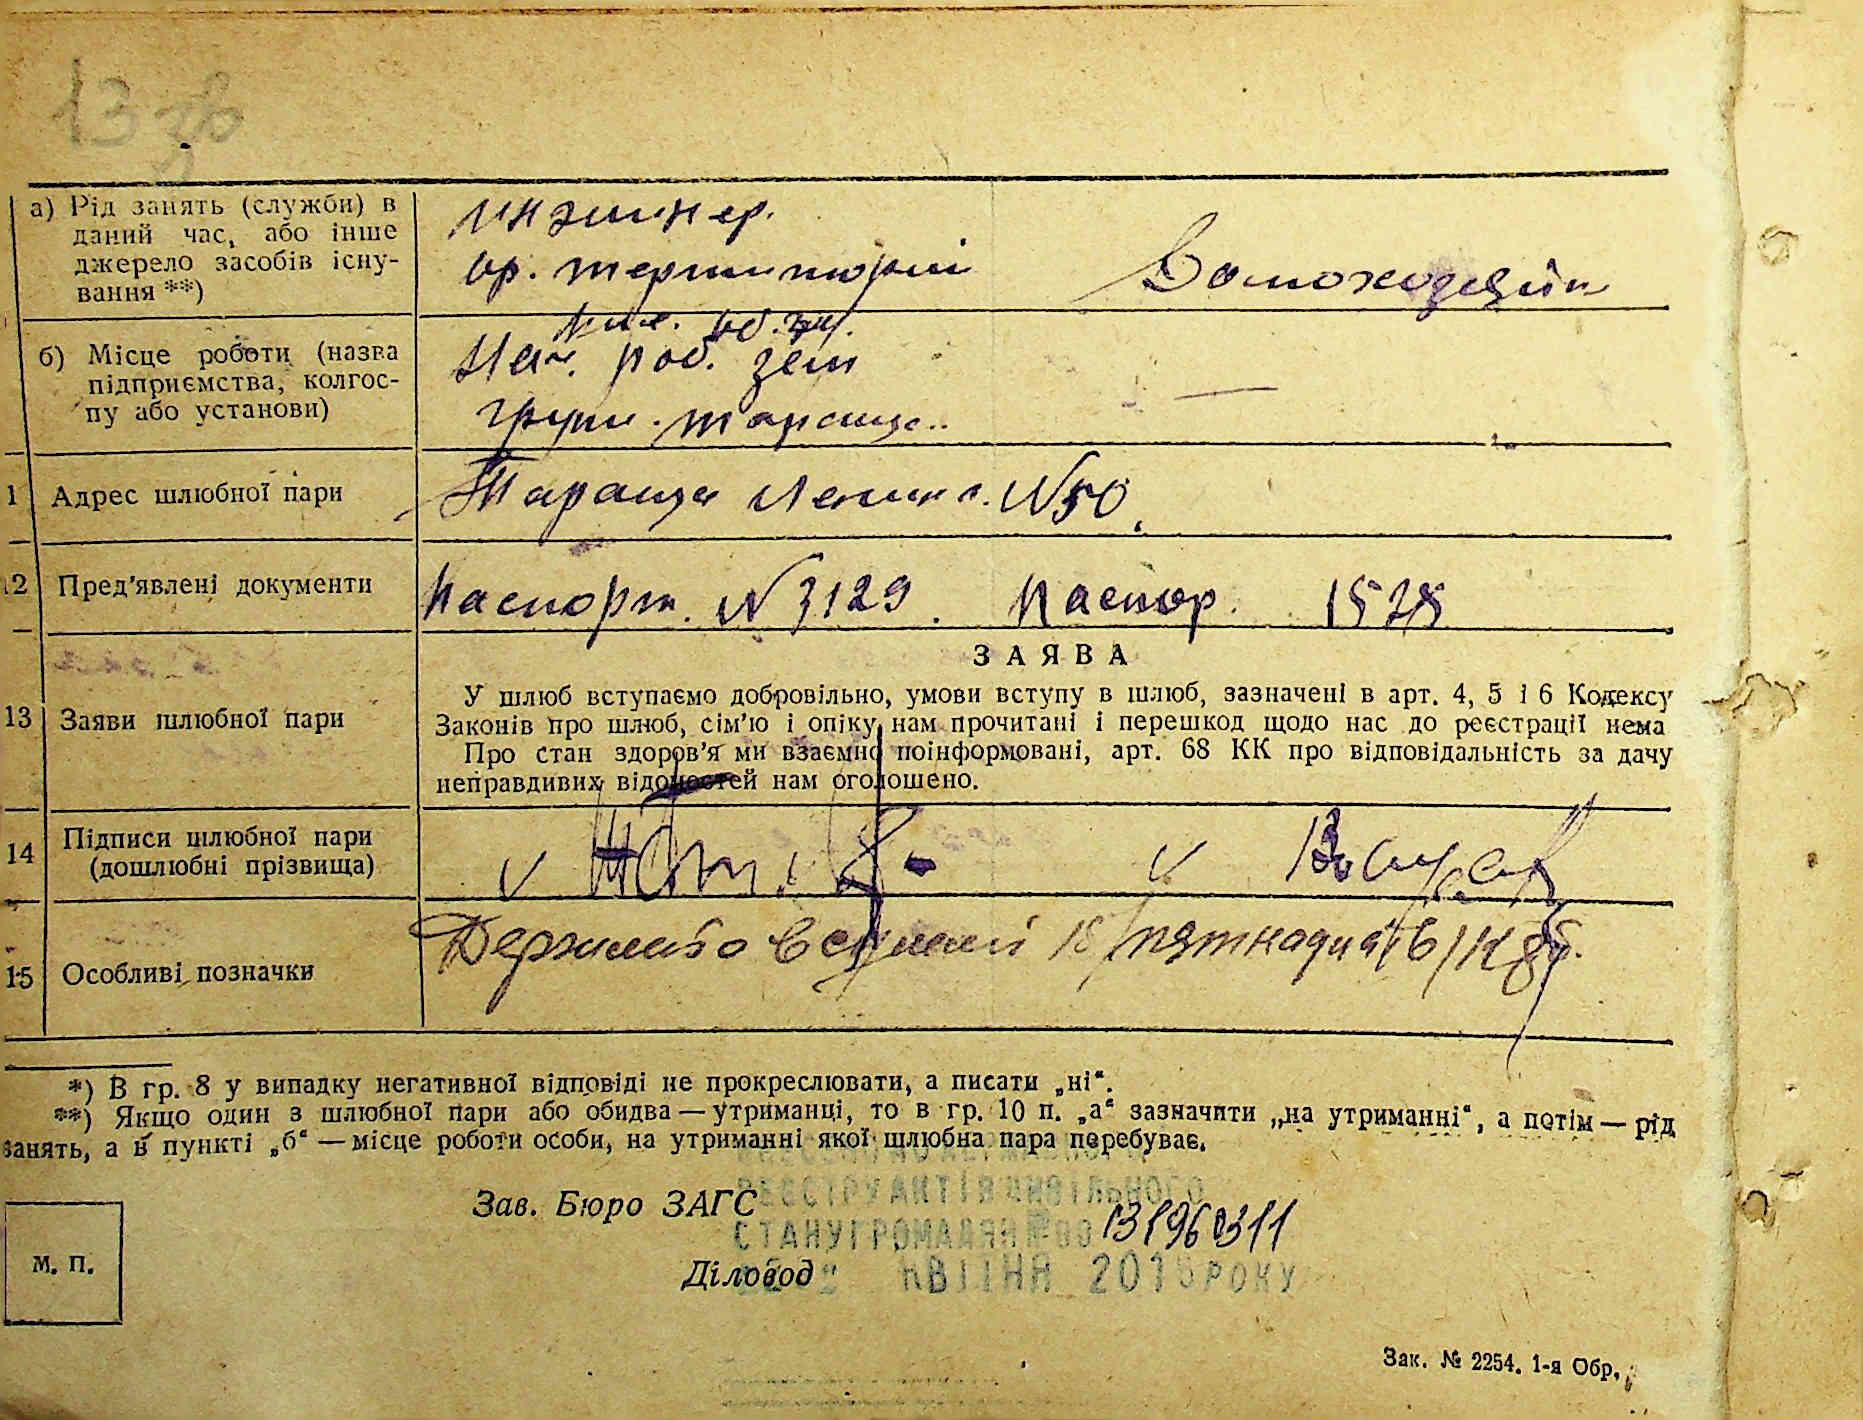 13 зв
а) Рід занять (служби) в
даний час, або інше
джерело засобів існу-
вання **)
инжинер.
ор. територіи
Домохозяйк
б) Місце роботи (назва
підприємства, колгос-
пу або установи)
Нач. роб. зем
груп. Тараща..
—
1 Адрес шлюбної пари
Тараща Ленина. N50.
12 Пред'явлені документи
Паспорт. N3129. Паспор. 1578
13 Заяви шлюбної пари
ЗАЯВА
У шлюб вступаємо добровільно, умови вступу в шлюб, зазначені в арт. 4, 5 і 6 Кодексу
Законів про шлюб, сім'ю і опіку нам прочитані і перешкод щодо нас до реєстрації нема
Про стан здоров'я ми взаємно поінформовані, арт. 68 КК про відповідальність за дачу
неправдивих відомостей нам оголошено.
14 Підписи шлюбної пари
(дошлюбні прізвища)
v v
15 Особливі позначки
Державного 15/пятнадцать/
*) В гр. 8 у випадку негативної відповіді не прокреслювати, а писати „ні“.
**) Якщо один з шлюбної пари або обидва — утриманці, то в гр. 10 п. „а“ зазначити „на утриманні“, а потім — рід
занять, а в пункті „б“ — місце роботи особи, на утриманні якої шлюбна пара перебуває.
ВНЕСЕНО ДО ДЕРЖАВНОГО
РЕЄСТРУ АКТІВ ЦИВІЛЬНОГО
Зав. Бюро ЗАГС
СТАНУ ГРОМАДЯН № 00131960311
Діловод
КВІТНЯ 2015 РОКУ
М. П.
Зак. № 2254. 1-я Обр.